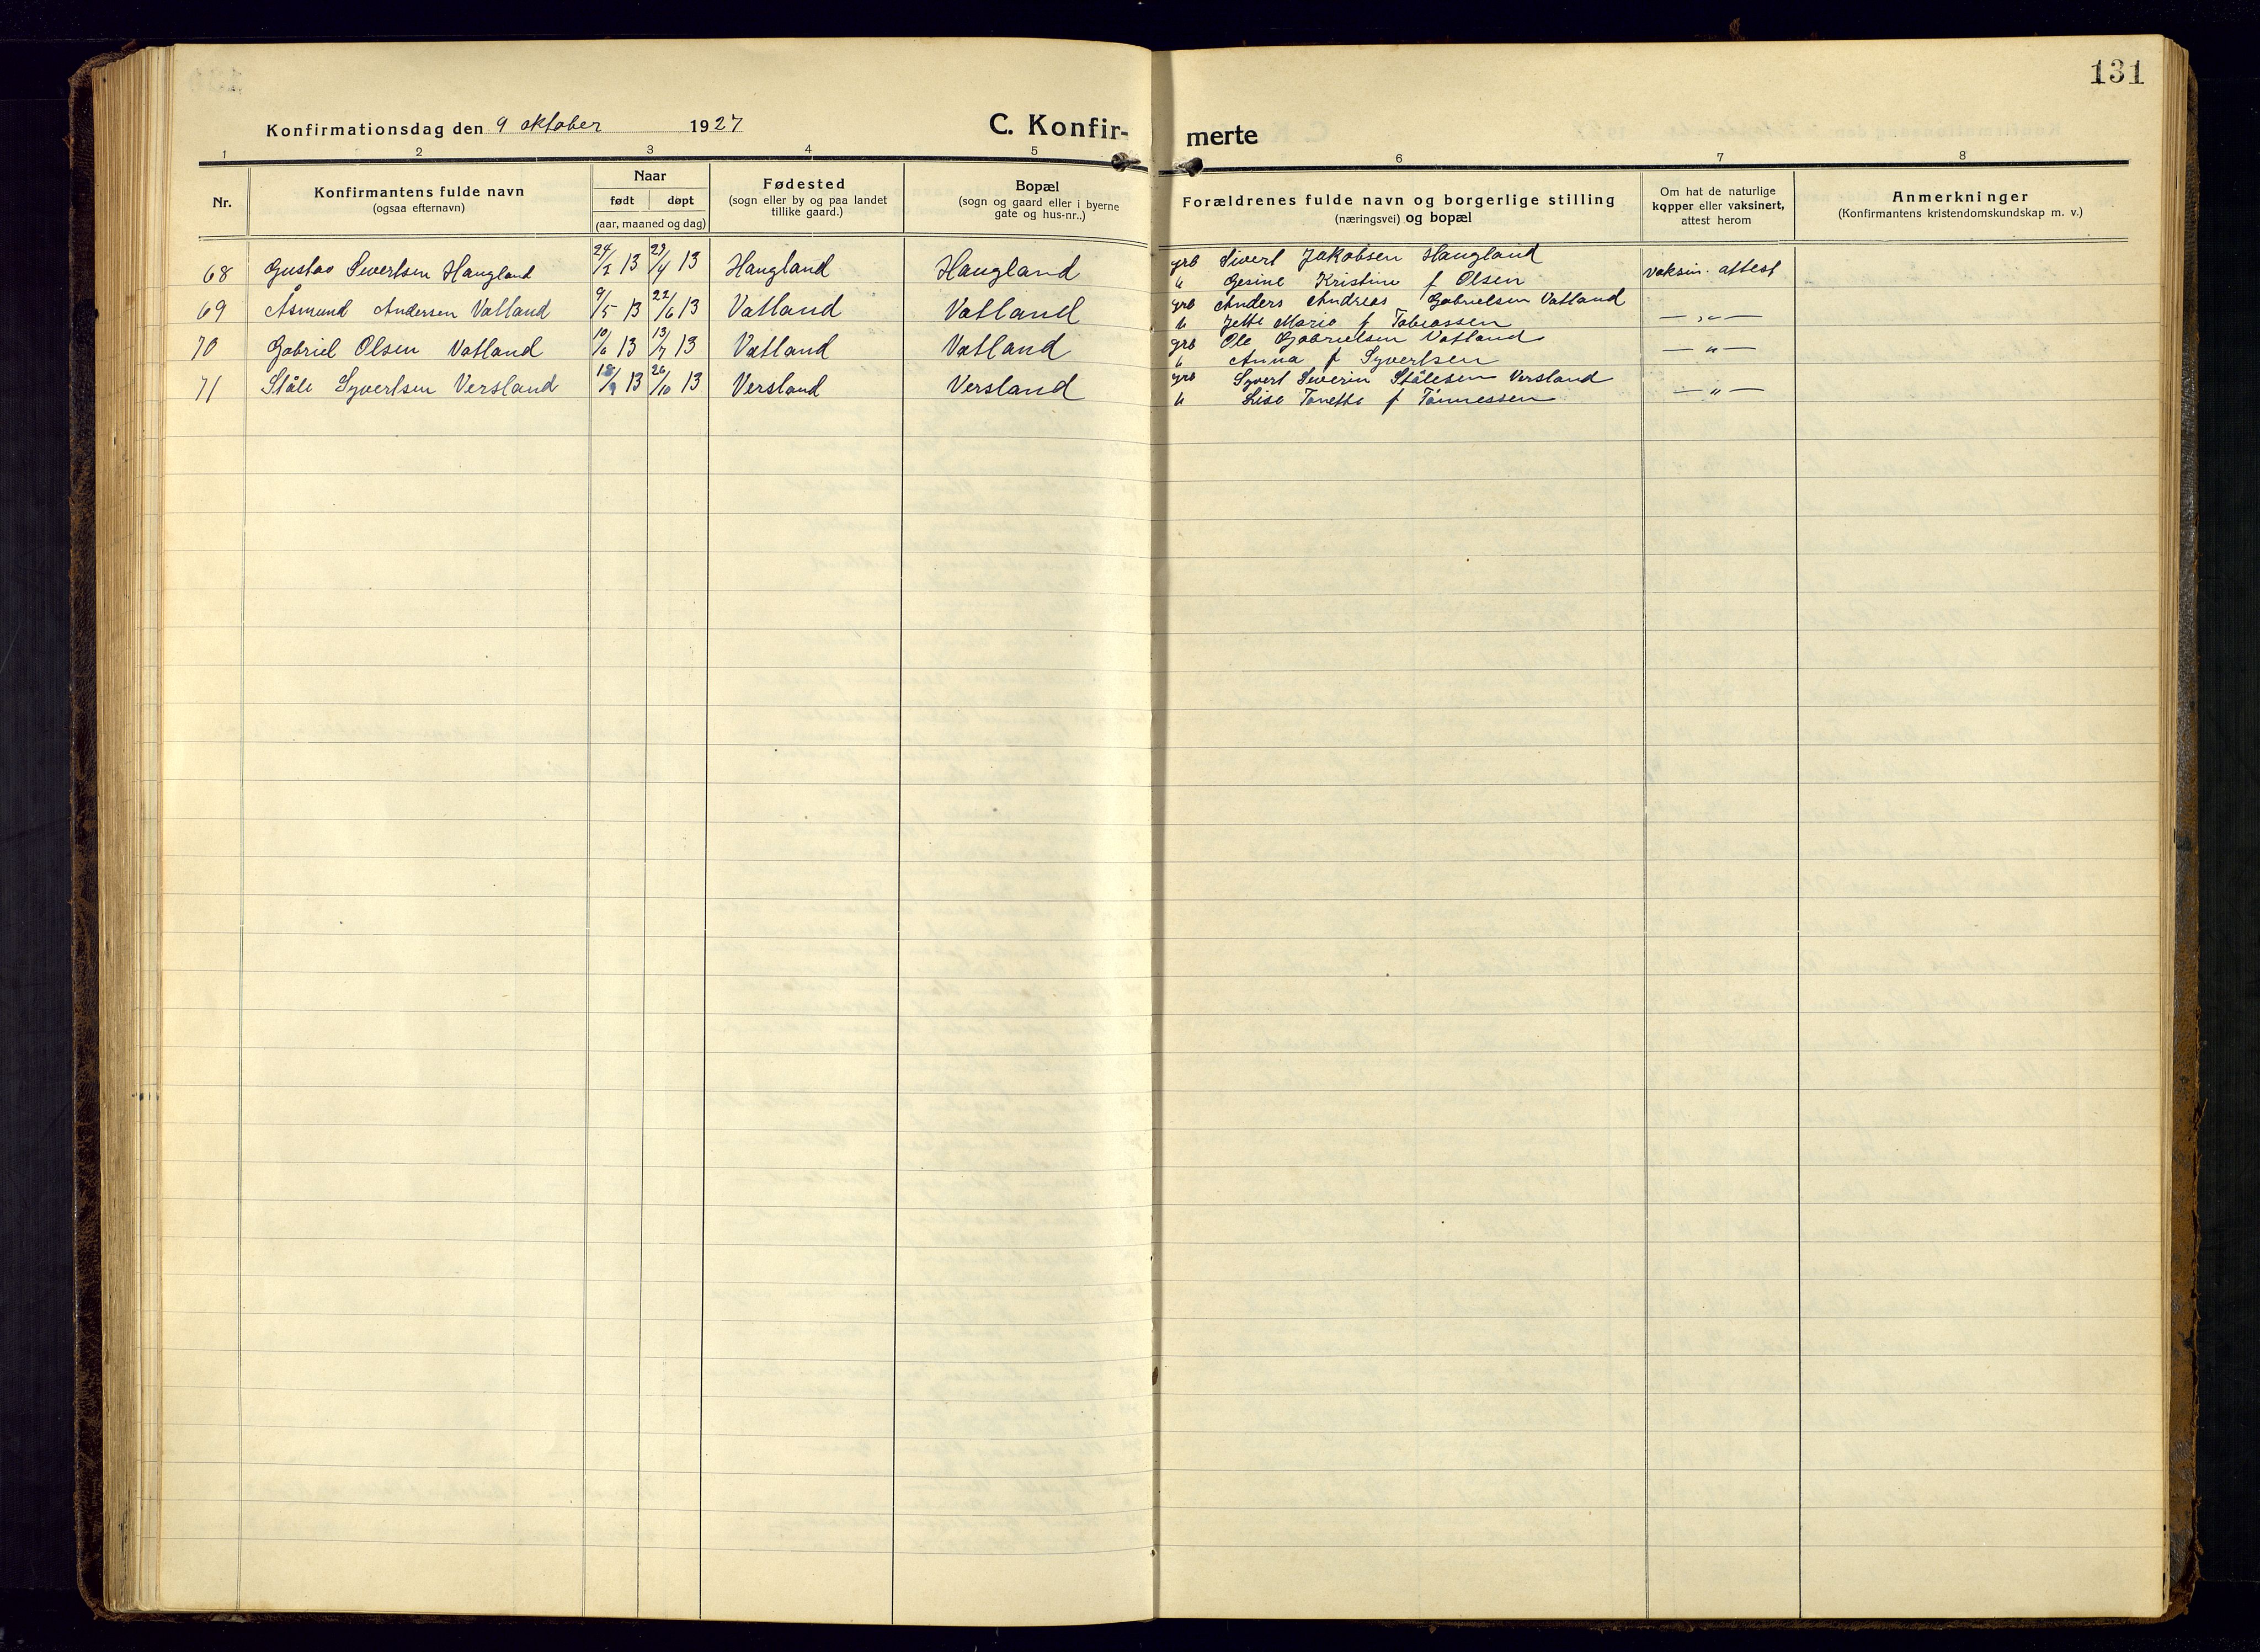 131
Konfirmationsdag den 9 oktober 1927
C. Konfir-
merte
1 2 3 4 5 6 7 8
Nr.
Konfirmantens fulde navn
(ogsaa efternavn)
Naar
født døpt
(aar, maaned og dag)
Fødested
(sogn eller by og paa landet
tillike gaard.)
Bopæl
(sogn og gaard eller i byerne
gate og hus-nr..)
Forældrenes fulde navn og borgerlige stilling
(næringsvei) og bopæl
Om hat de naturlige
kopper eller vaksinert,
attest herom
Anmerkninger
(Konfirmantens kristendomskundskap m. v.)
68 Gustav Sivertsen Haugland 24/2 13 /4 13 Haugland Haugland grb Sivert Jakobsen Haugland vaksin. attest
u Gesine Kristine f Olsen
69 Åsmund Andersen Vatland 9/5 13 22/6 13 Vatland Vatland grb Anders Andreas Gabrielsen Vatland — " —
u Jette Marie f Tobiassen
70 Gabriel Olsen Vatland 10/6 13 13/7 13 Vatland Vatland grb Ole Gabrielsen Vatland — " —
u Anna f Syvertsen
71 Ståle Syvertsen Versland 18/9 13 26/10 13 Versland Versland grb Syvert Severin Stålesen Versland — " —
u Lise Tonette f Tønnessen